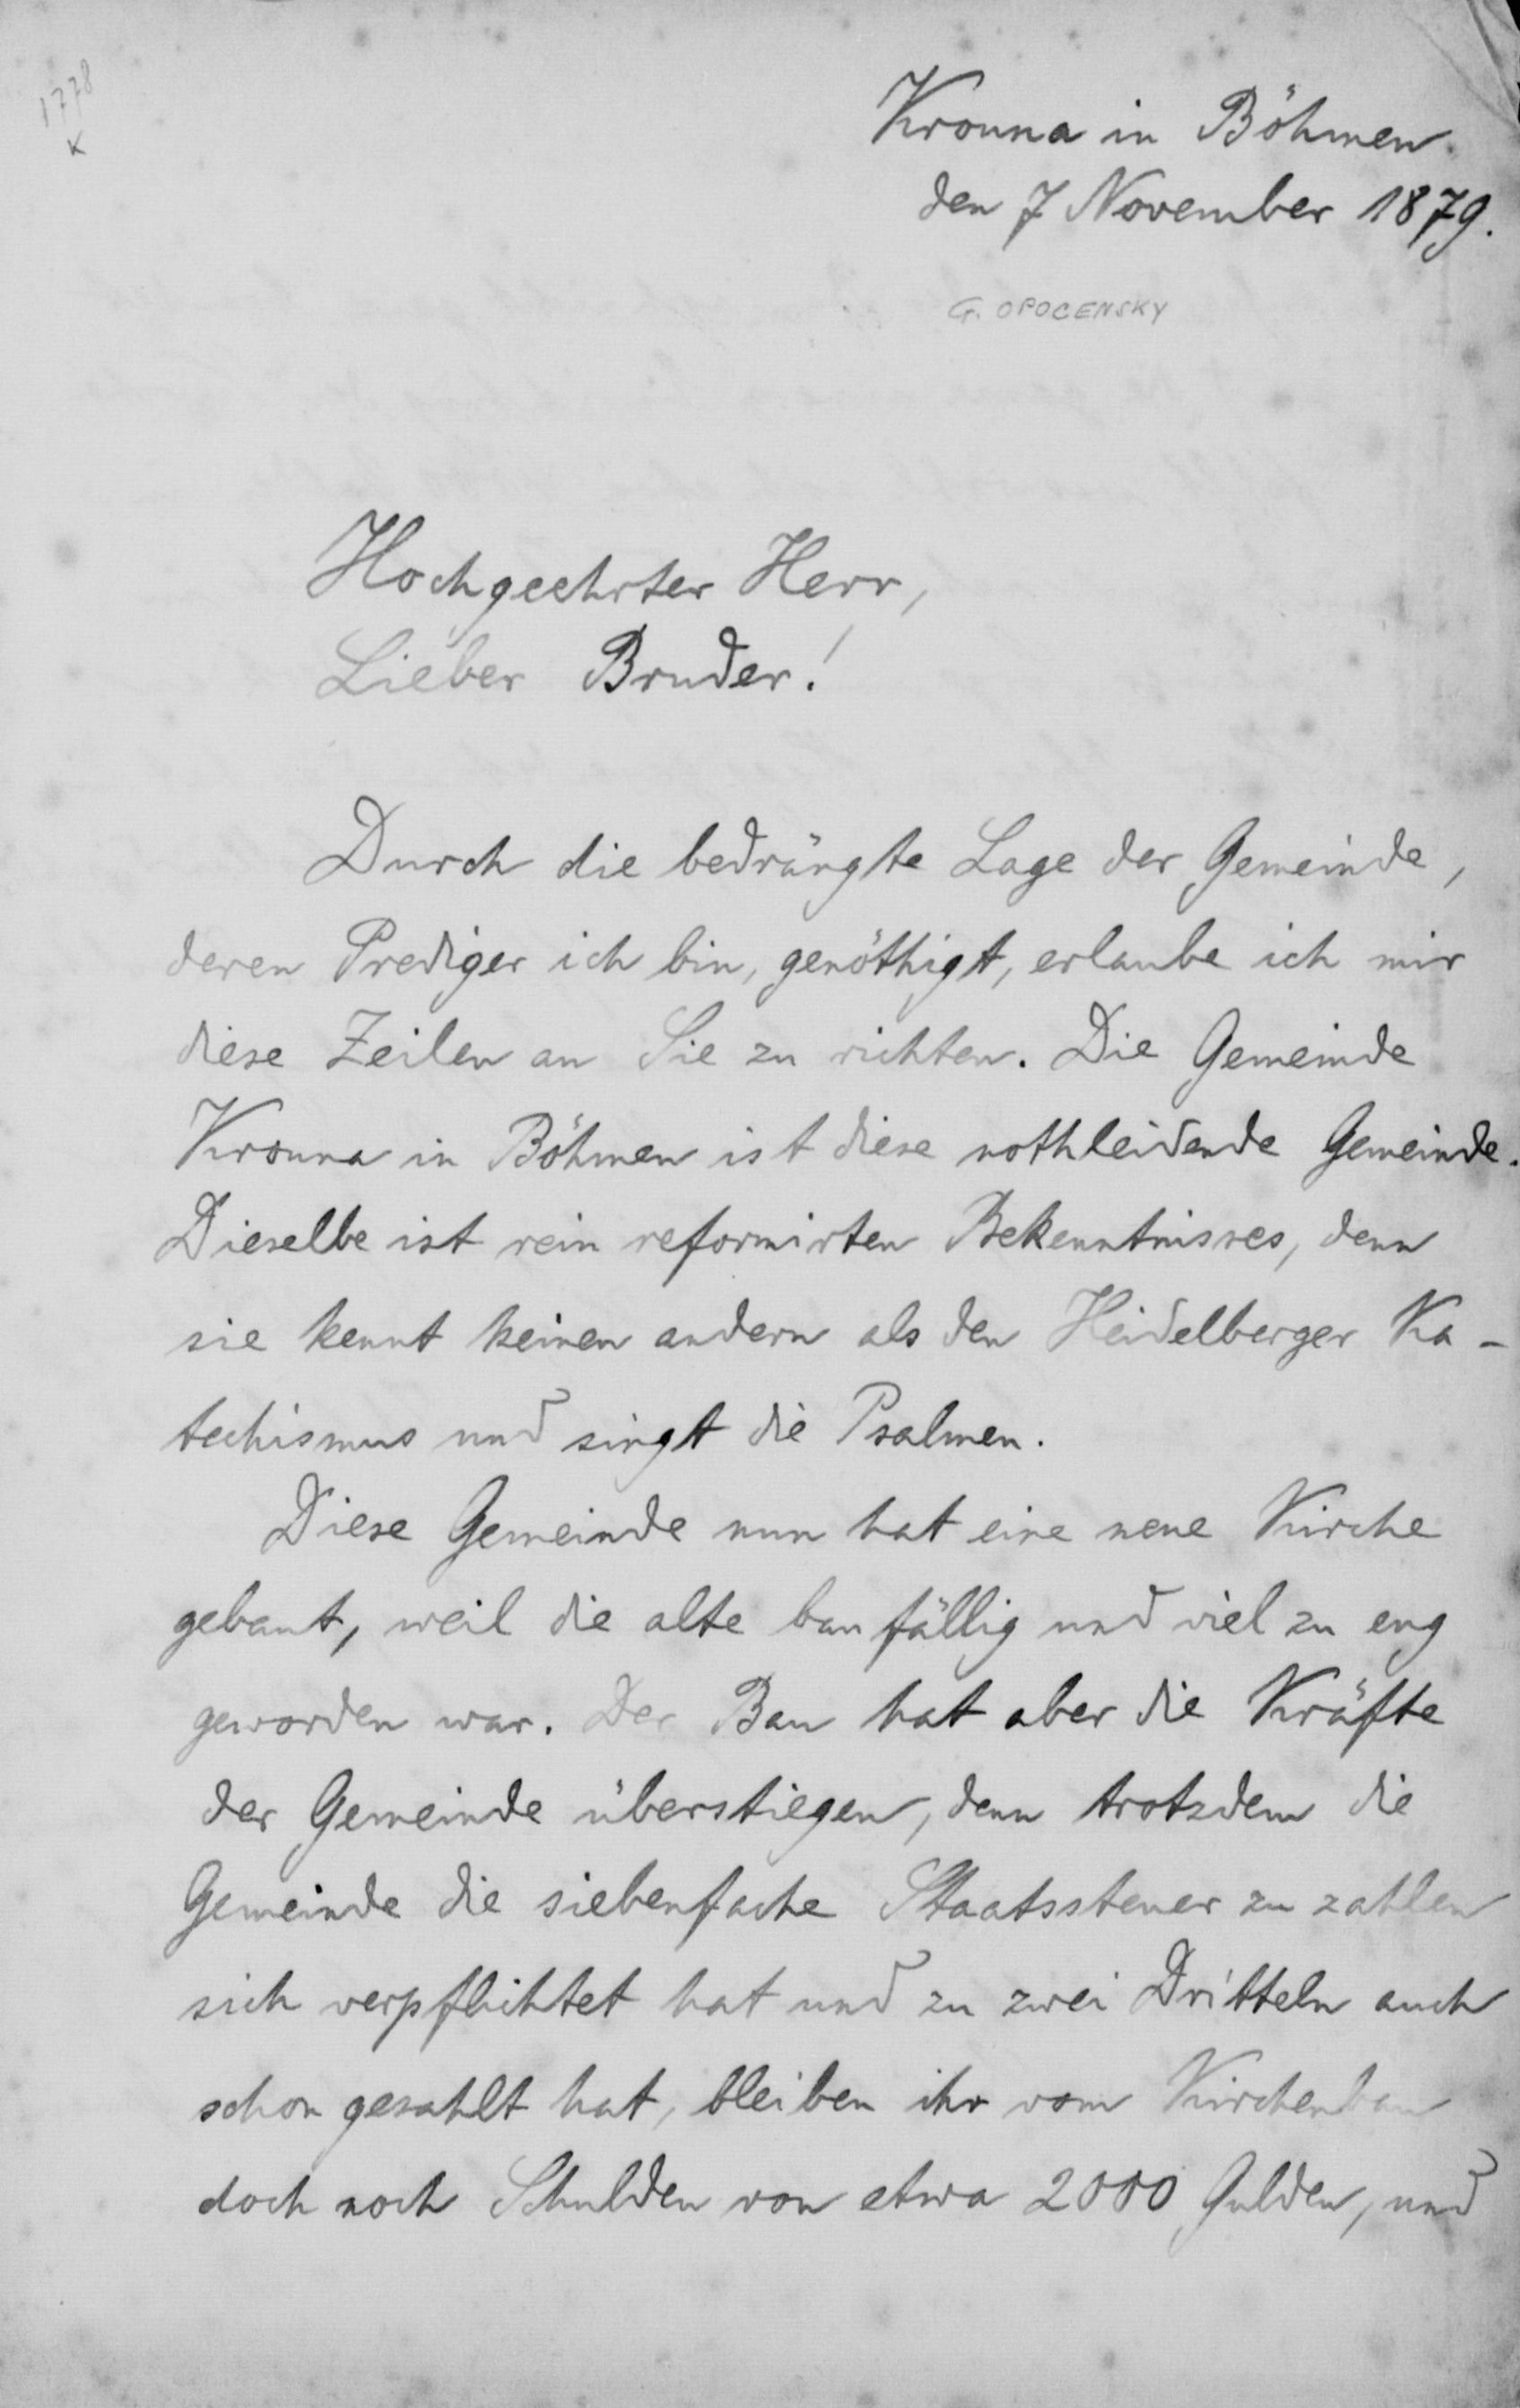 1778
K
Krouna in Böhmen.
den 7 November 1879.
G. OPOCENSKY
Hochgeehrter Herr,
Lieber Bruder!
Durch die bedrängte Lage der Gemeinde,
deren Prediger ich bin, genöthigt, erlaube ich mir
diese Zeilen an Sie zu richten. Die Gemeinde
Krouna in Böhmen ist diese nothleidende Gemeinde.
Dieselbe ist rein reformirten Bekenntnisses, denn
sie kennt keinen andern als den Heidelberger Ka-
techismus und singt die Psalmen.
Diese Gemeinde nun hat eine neue Kirche
gebaut, weil die alte baufällig und viel zu eng
geworden war. Der Bau hat aber die Kräfte
der Gemeinde überstiegen, denn trotzdem die
Gemeinde die siebenfache Staatssteuer zu zahlen
sich verpflichtet hat und zu zwei Dritteln auch
schon gezahlt hat, bleiben ihr vom Kirchenbau
doch noch Schulden von etwa 2000 Gulden, und